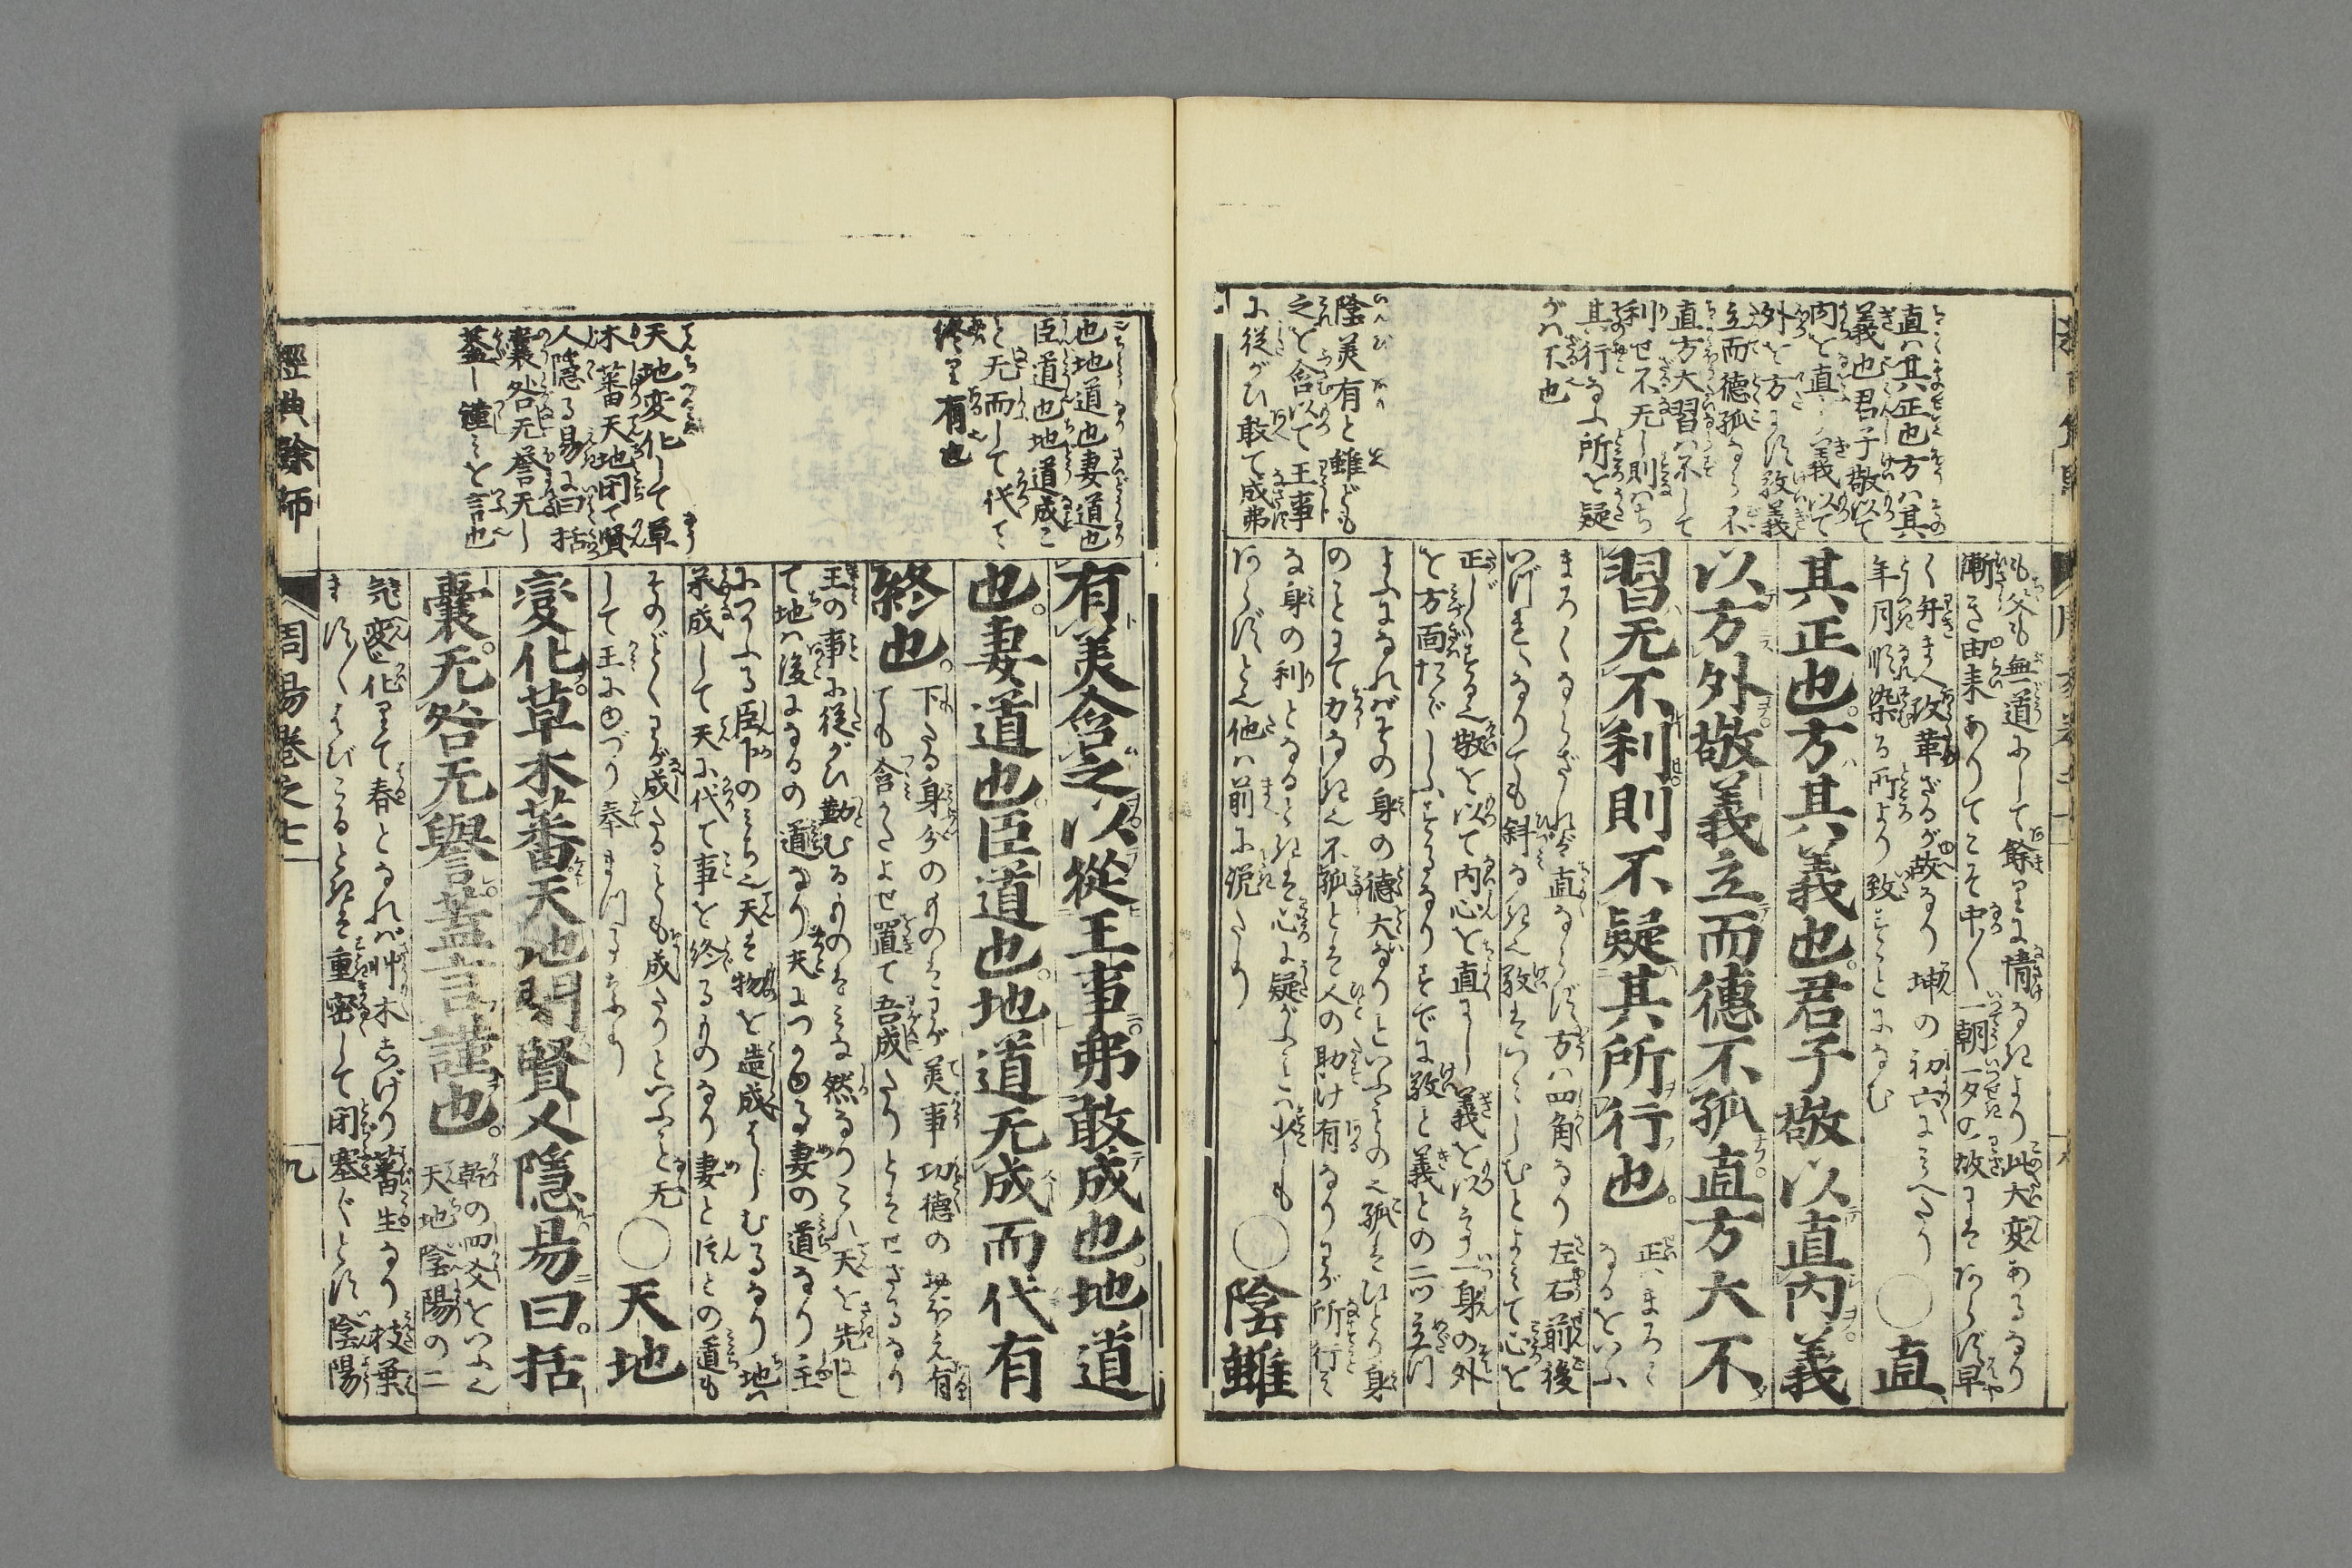 直ハ其正也方ハ其
義也君子敬以て
内を直し義以て
外を方にす敬義
立而德孤ならず
直方大習ハ不して
利せ不无し則ハち
其行なふ所を疑
がハ不也
陰美有と雖ども
之を含以て王事
に從がひ敢て成弗
も父も無道にして餘りに情なきより此大変あるなり
漸き由来ありてこそ中々一朝一夕の故にはあらず早
く弁まへ改革ざるが故なり坤の初六にみへたり
年月順染る所より致すことになむ
○直
其正也方其義也君子敬以直内義
以方外敬義立而德不孤直方大不
習无不利則不疑其所行也
正ハまろく
なるをいふ
まろくならざれば直ならず方ハ四角なり左右前後
いづれになりても斜なきん敬はつゝしむとよみて心を
正しくするん敬を以て内心を直にし義を以て一身の外
を方面たゞしふするなりすでに敬と義との二ツ立つ
ようになれがその身の德大なりといふもの也孤はひとり身
のことにて力なきん不孤とは人の助け有なりわが所行み
な身の利となるときは心に疑がふことハ少しも
あらずとん他ハ前に説たり
○陰雖
有美含之以從王事弗敢成也地道
也妻道也臣道也地道无成而代有
終也
下たる身分のものはわが美事功德の聞え有
ても含かたよせ置て吾成たりとはせざるなり
王の事に從がひ勤むるものはみな然るなりこれ天を先にし
て地ハ後になるの道なり夫につかゆる妻の道なり主
につかふる臣下のみち也天は物を造成はじむるなり地ハ
承成して天に代て事を終るものなり妻と臣との道も
そのごとくわが成たることも成たりといふこと无
して王にゆづり奉まつるなり
○天地
變化草木蕃天地閉賢人隱易曰括
囊无咎无譽蓋言謹也
乾の四爻をいふん
天地陰陽の二
気変化して春となれバ艸木しげり蕃生なり枝葉
ますゝはびこるときは重密して閉塞ぐとす陰陽
也地道也妻道也
臣道也地道成こ
と无而して代て
終り有也
天地変化して草
木蕃天地閉て賢
人隱る易に曰括
囊咎无譽无し
蓋し謹みを言也
經典餘師
周易卷之七
九